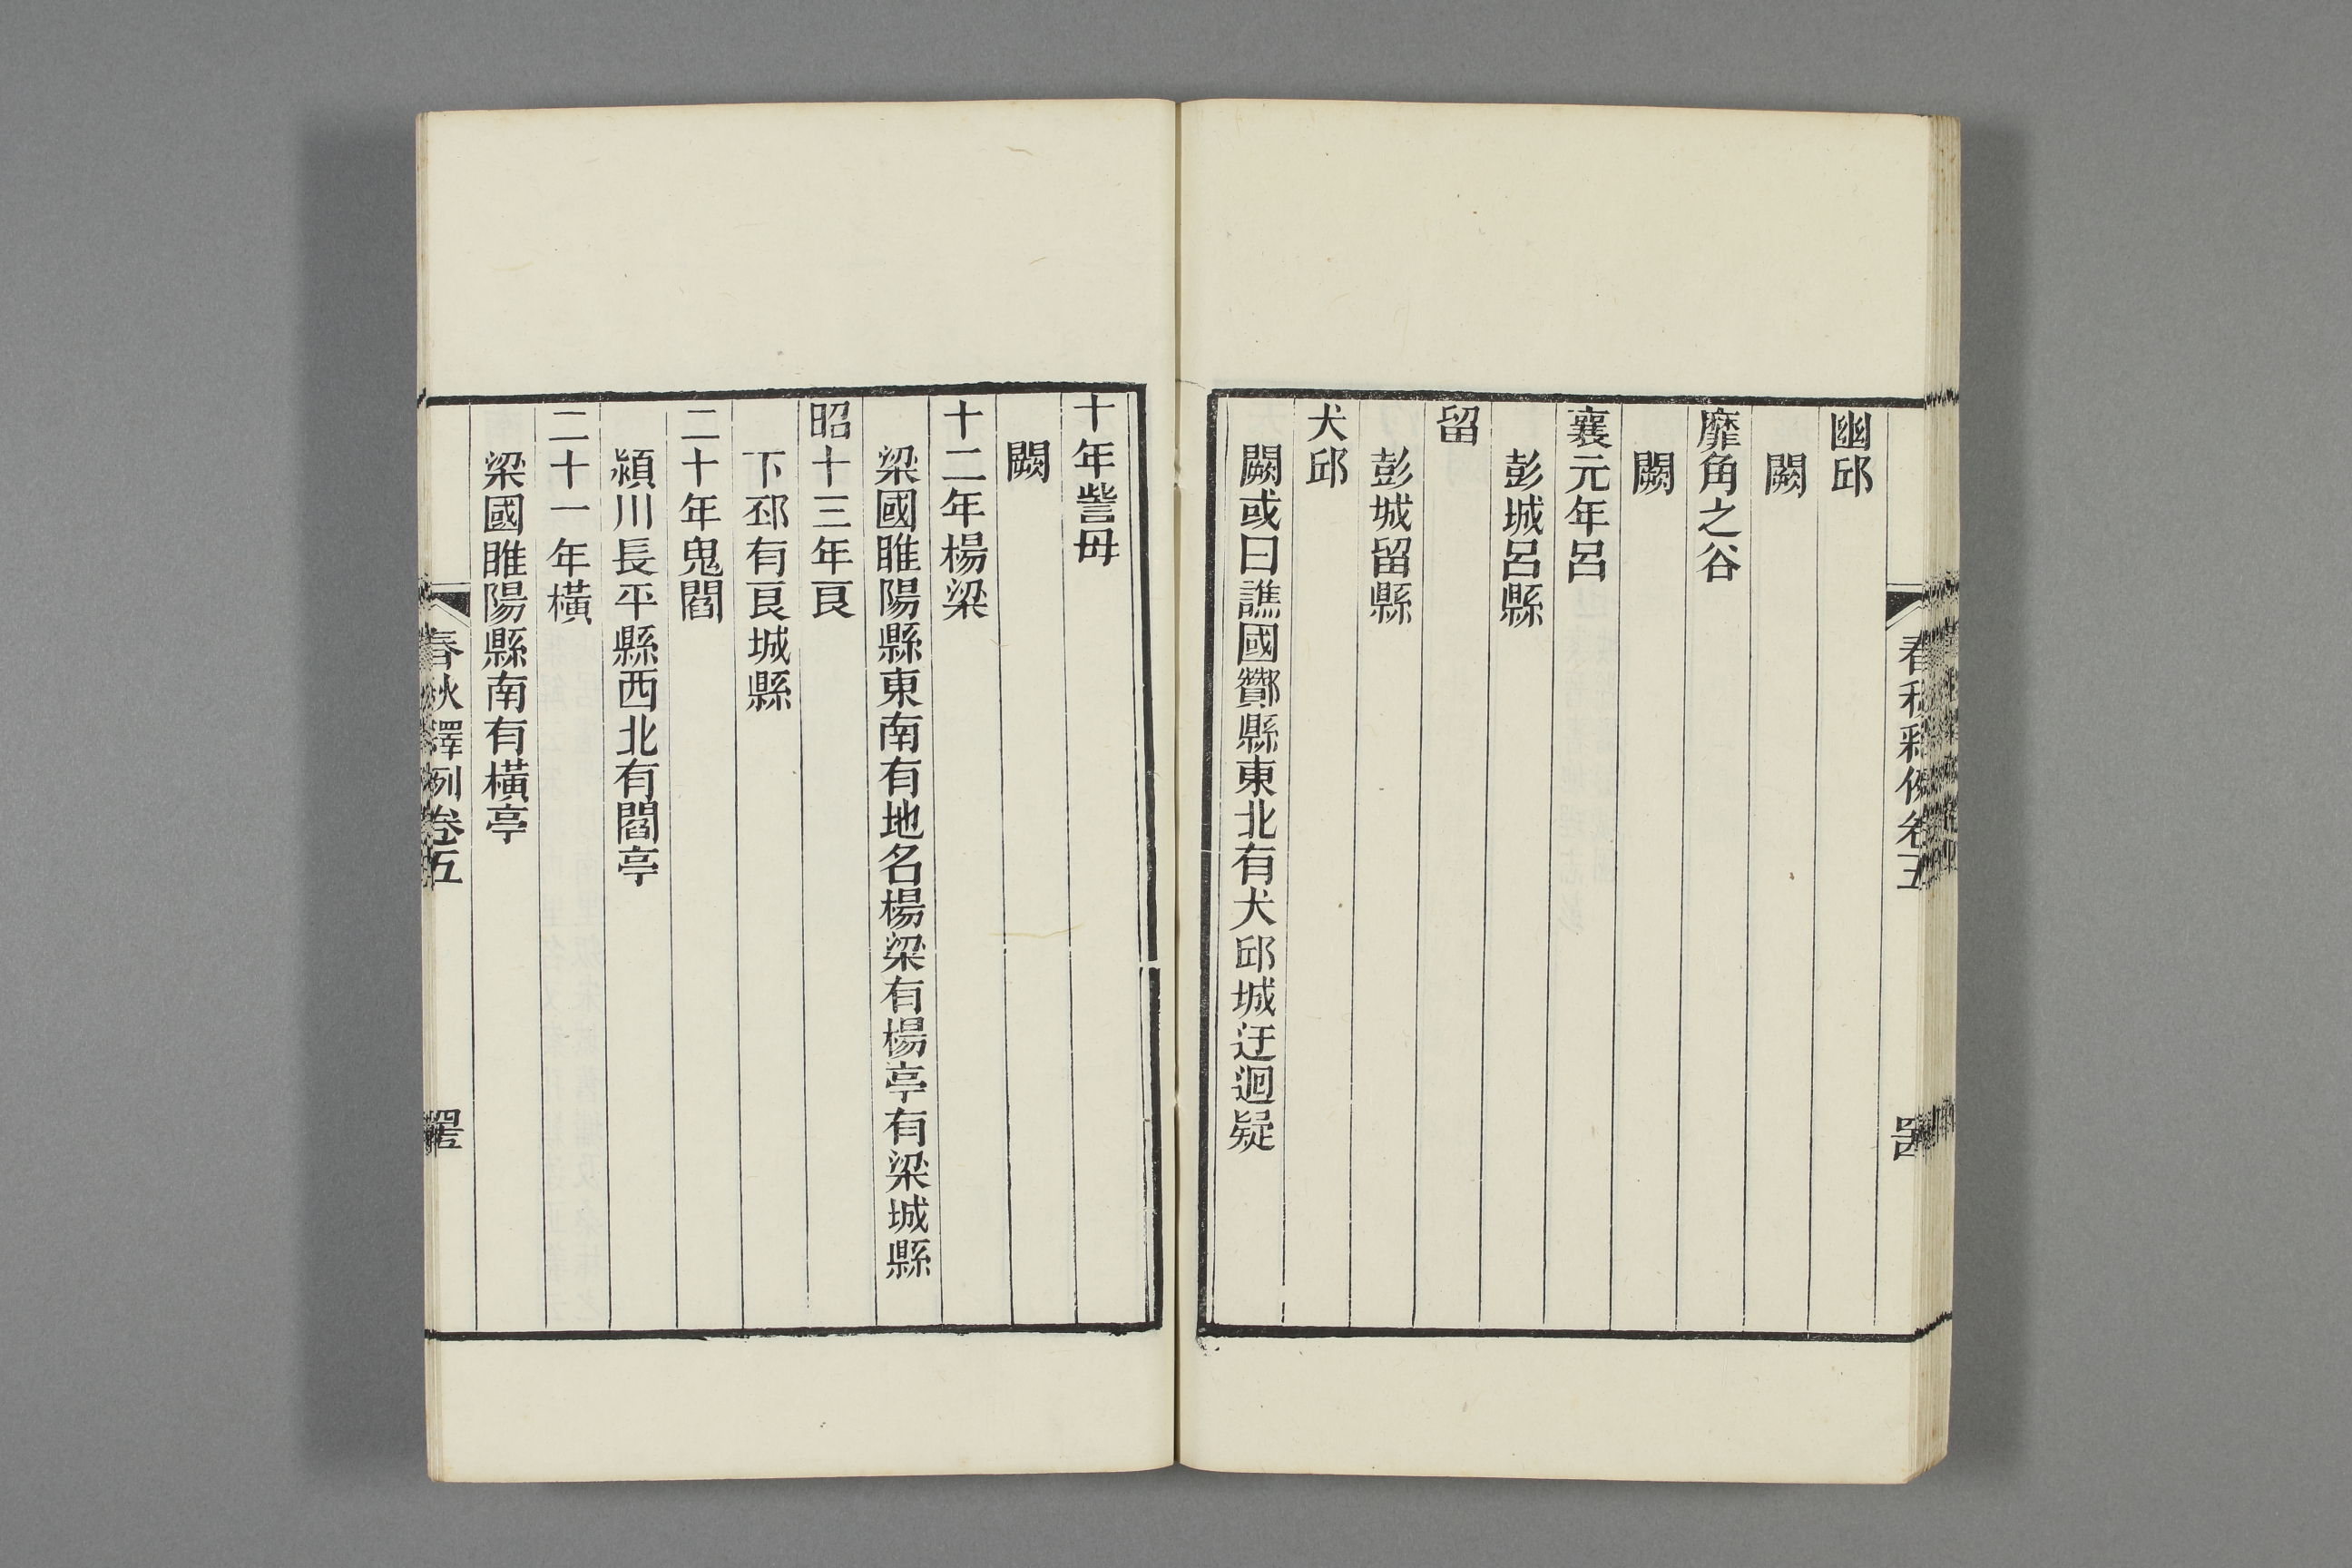 幽邱
闕
靡角之谷
闕
襄元年呂
彭城呂縣
留
彭城留縣
犬邱
闕或曰譙國酇縣東北有犬邱城迂迴疑
春秋釋例卷五
十年訾毋
闕
十二年楊梁
梁國睢陽縣東南有地名楊梁有楊亭有梁城縣
昭十三年良
下邳有良城縣
二十年鬼閻
潁川長平縣西北有閻亭
二十一年橫
梁國睢陽縣南有橫亭
春秋釋例卷五